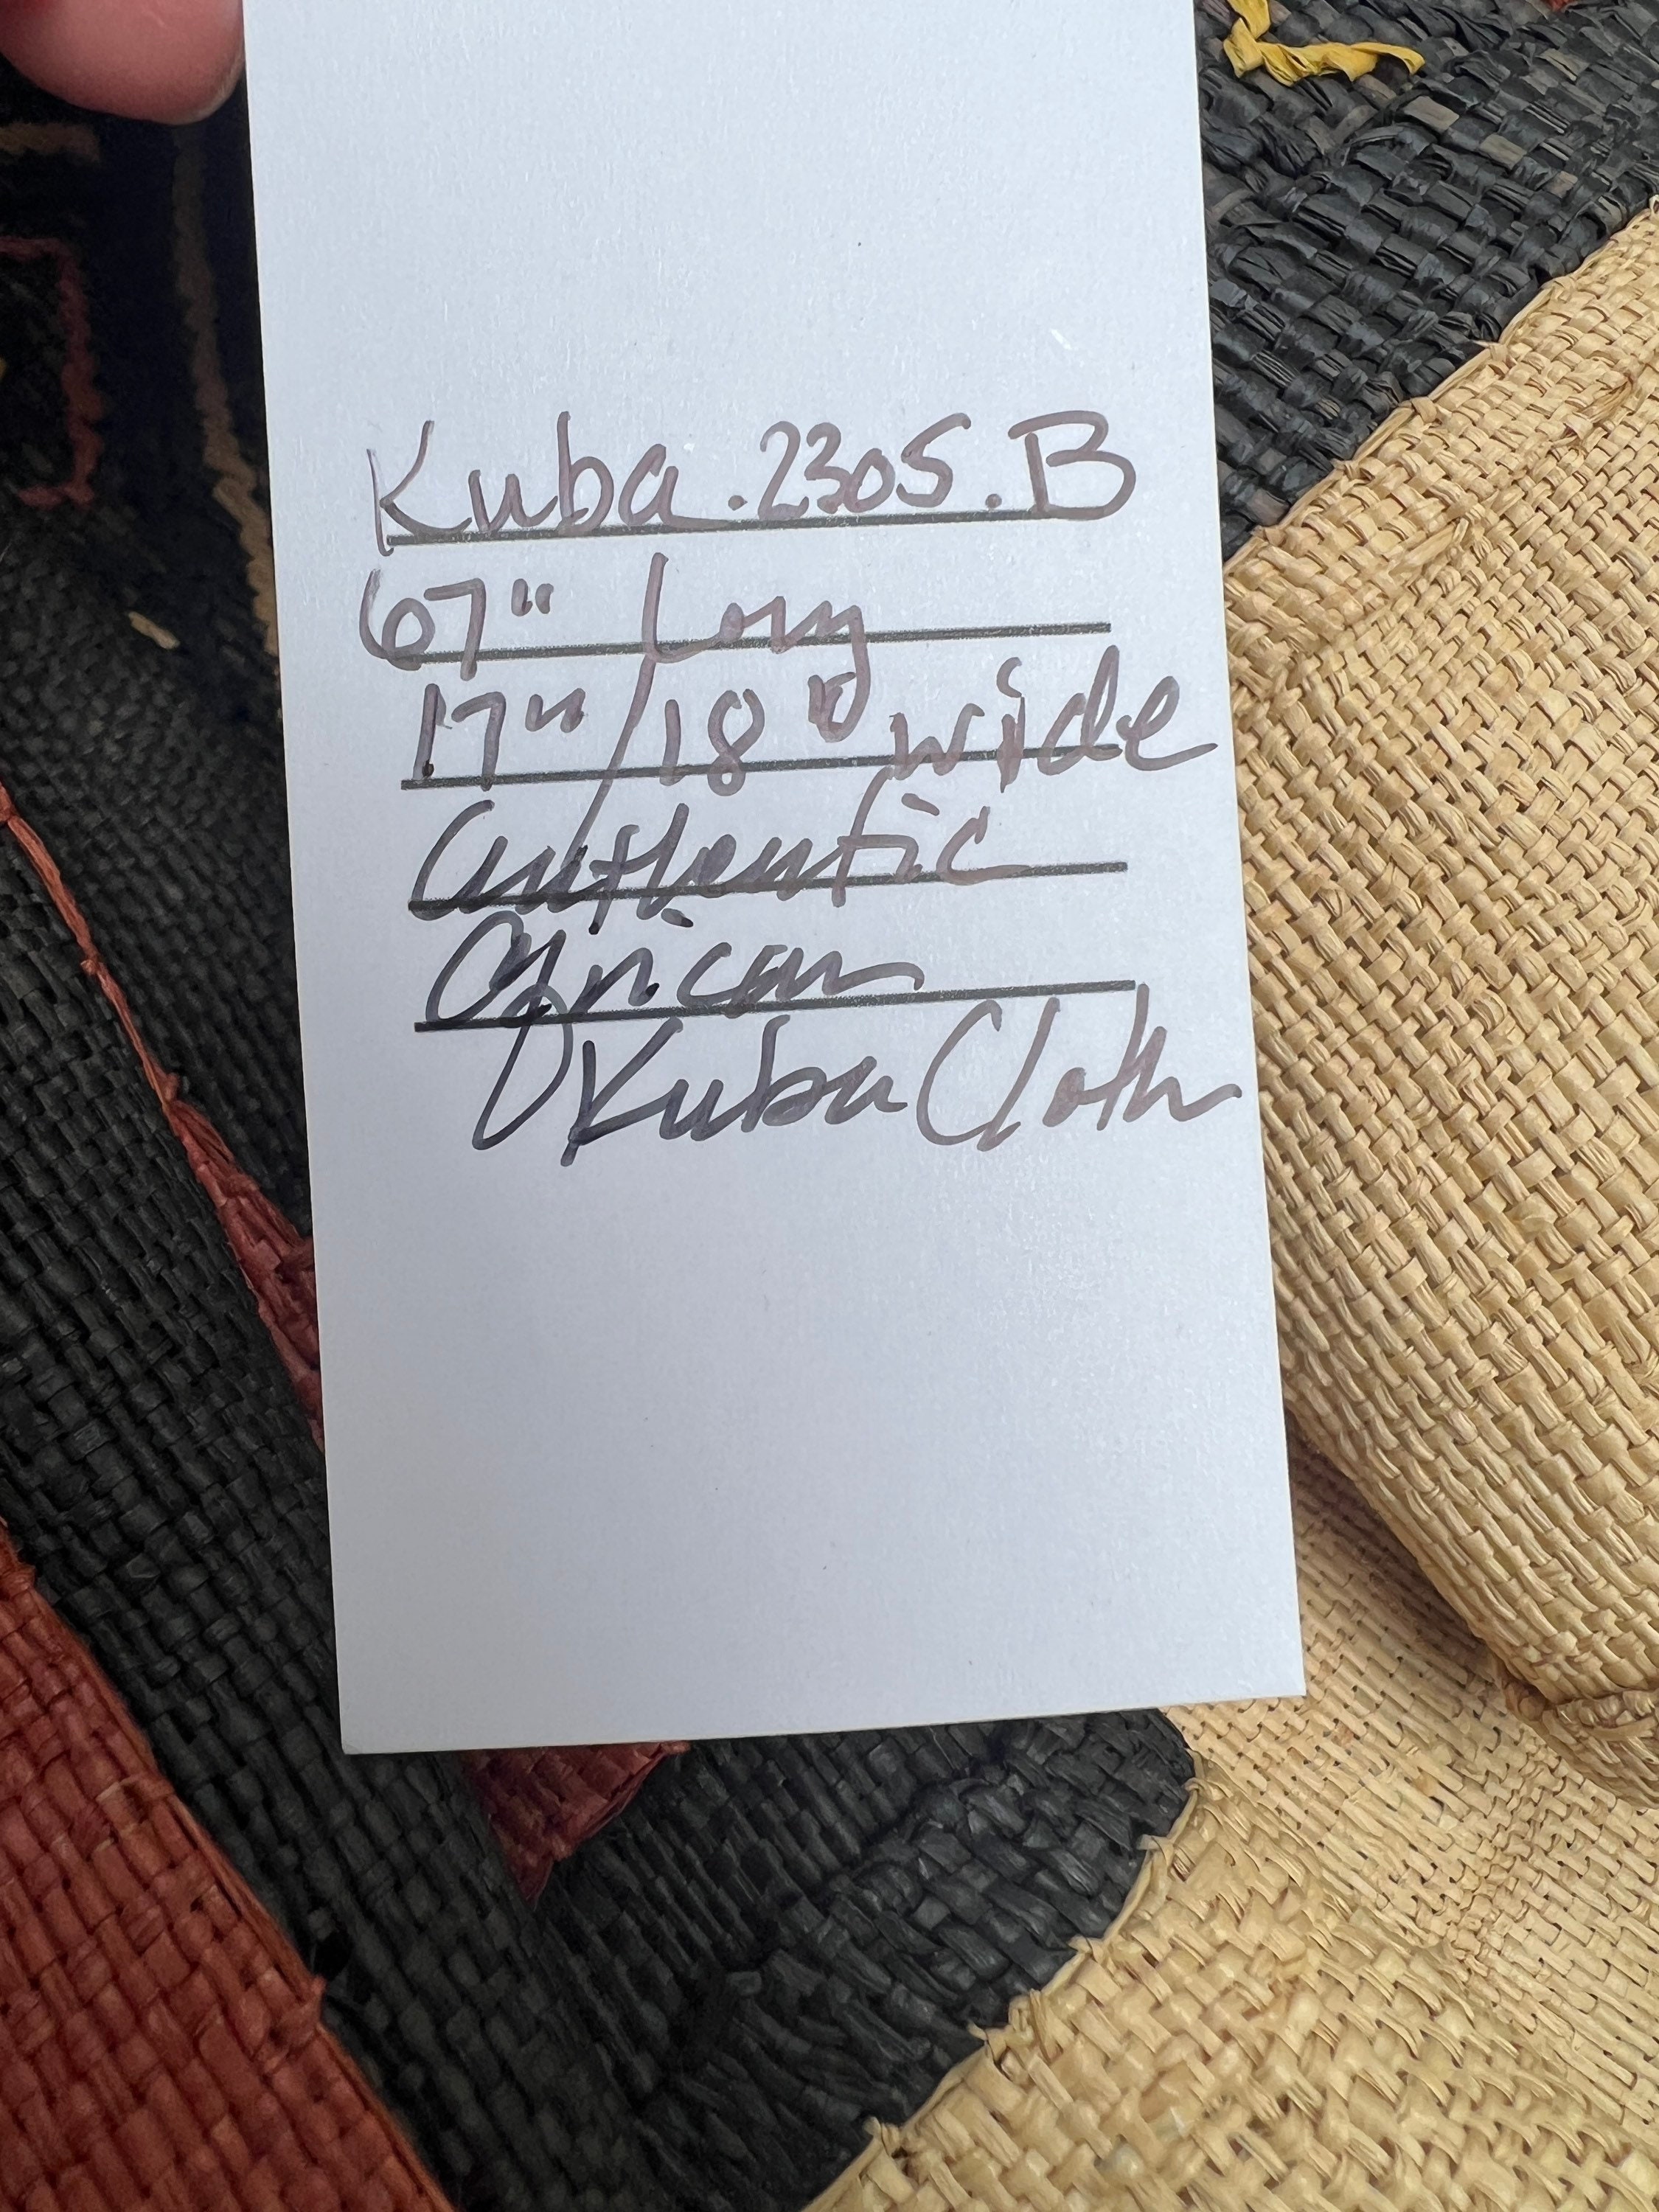 Kuba.2305.B
67" Long
17"/18" wide
Authentic
African
Kuba Cloth